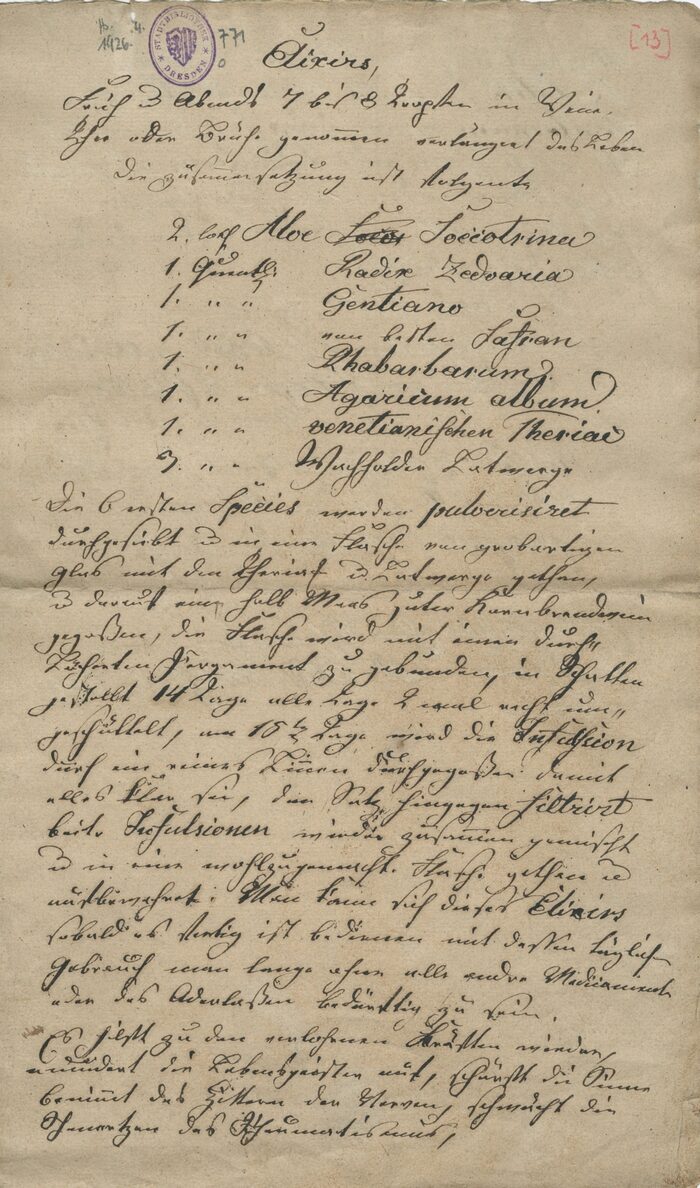 Bb. 4.
1926.
STADTBIBLIOTHEK
DRESDEN
771
0
[13]
Elixirs,
Früh u Abends 7 bis 8 Tropfen in Wein,
Thee oder Brühe genommen verlängert das Leben
die zusammensetzung ist folgente
2. loth Aloe Soccotrina
1. Quentl: Radix Zedoaria
1. " " Gentiano
1. " " von besten Safran
1. " " Rhabarbarum.
1. " " Agaricum album.
1. " " venetianischen Theriac
3. " " Wachholder Latwerge
Die 6 ersten Species werden pulverisiret
durchgesiebt u in eine Flasche von grobartigen
glas mit den Theriak u Latwerge gethan,
u darauf ein halb Maas guter Kornbrandwein
gegoßen, die Flasche wird mit einen durch„
löcherten Pergament zu gebunden, in Schatten
gestellt 14 Tage alle Tage 2 mal recht um„
geschüttelt, am 15tn Tage wird die Infussion
durch ein reines Linnen durchgegoßen damit
alles klar sei, den Satz hingegen filtrirt
beite Infulsionen wieder zusammen gemischt
u in eine wohlzugemacht. Flasche gethan u
aufbewahret. Man kann sich dieses Elixirs
sobald es fertig ist bedienen mit dessen täglich
Gebrauch man lange ohne alle andre Medicamente
oder des Aderlaßen bedürftig zu sein.
Es hilft zu den verlohrnen Kräften wieder,
muntert die Lebensgeister auf, schärft die Sinne
benimmt das Zittern der Nerven, schwächt die
Schmertzen des Rheumatismus,